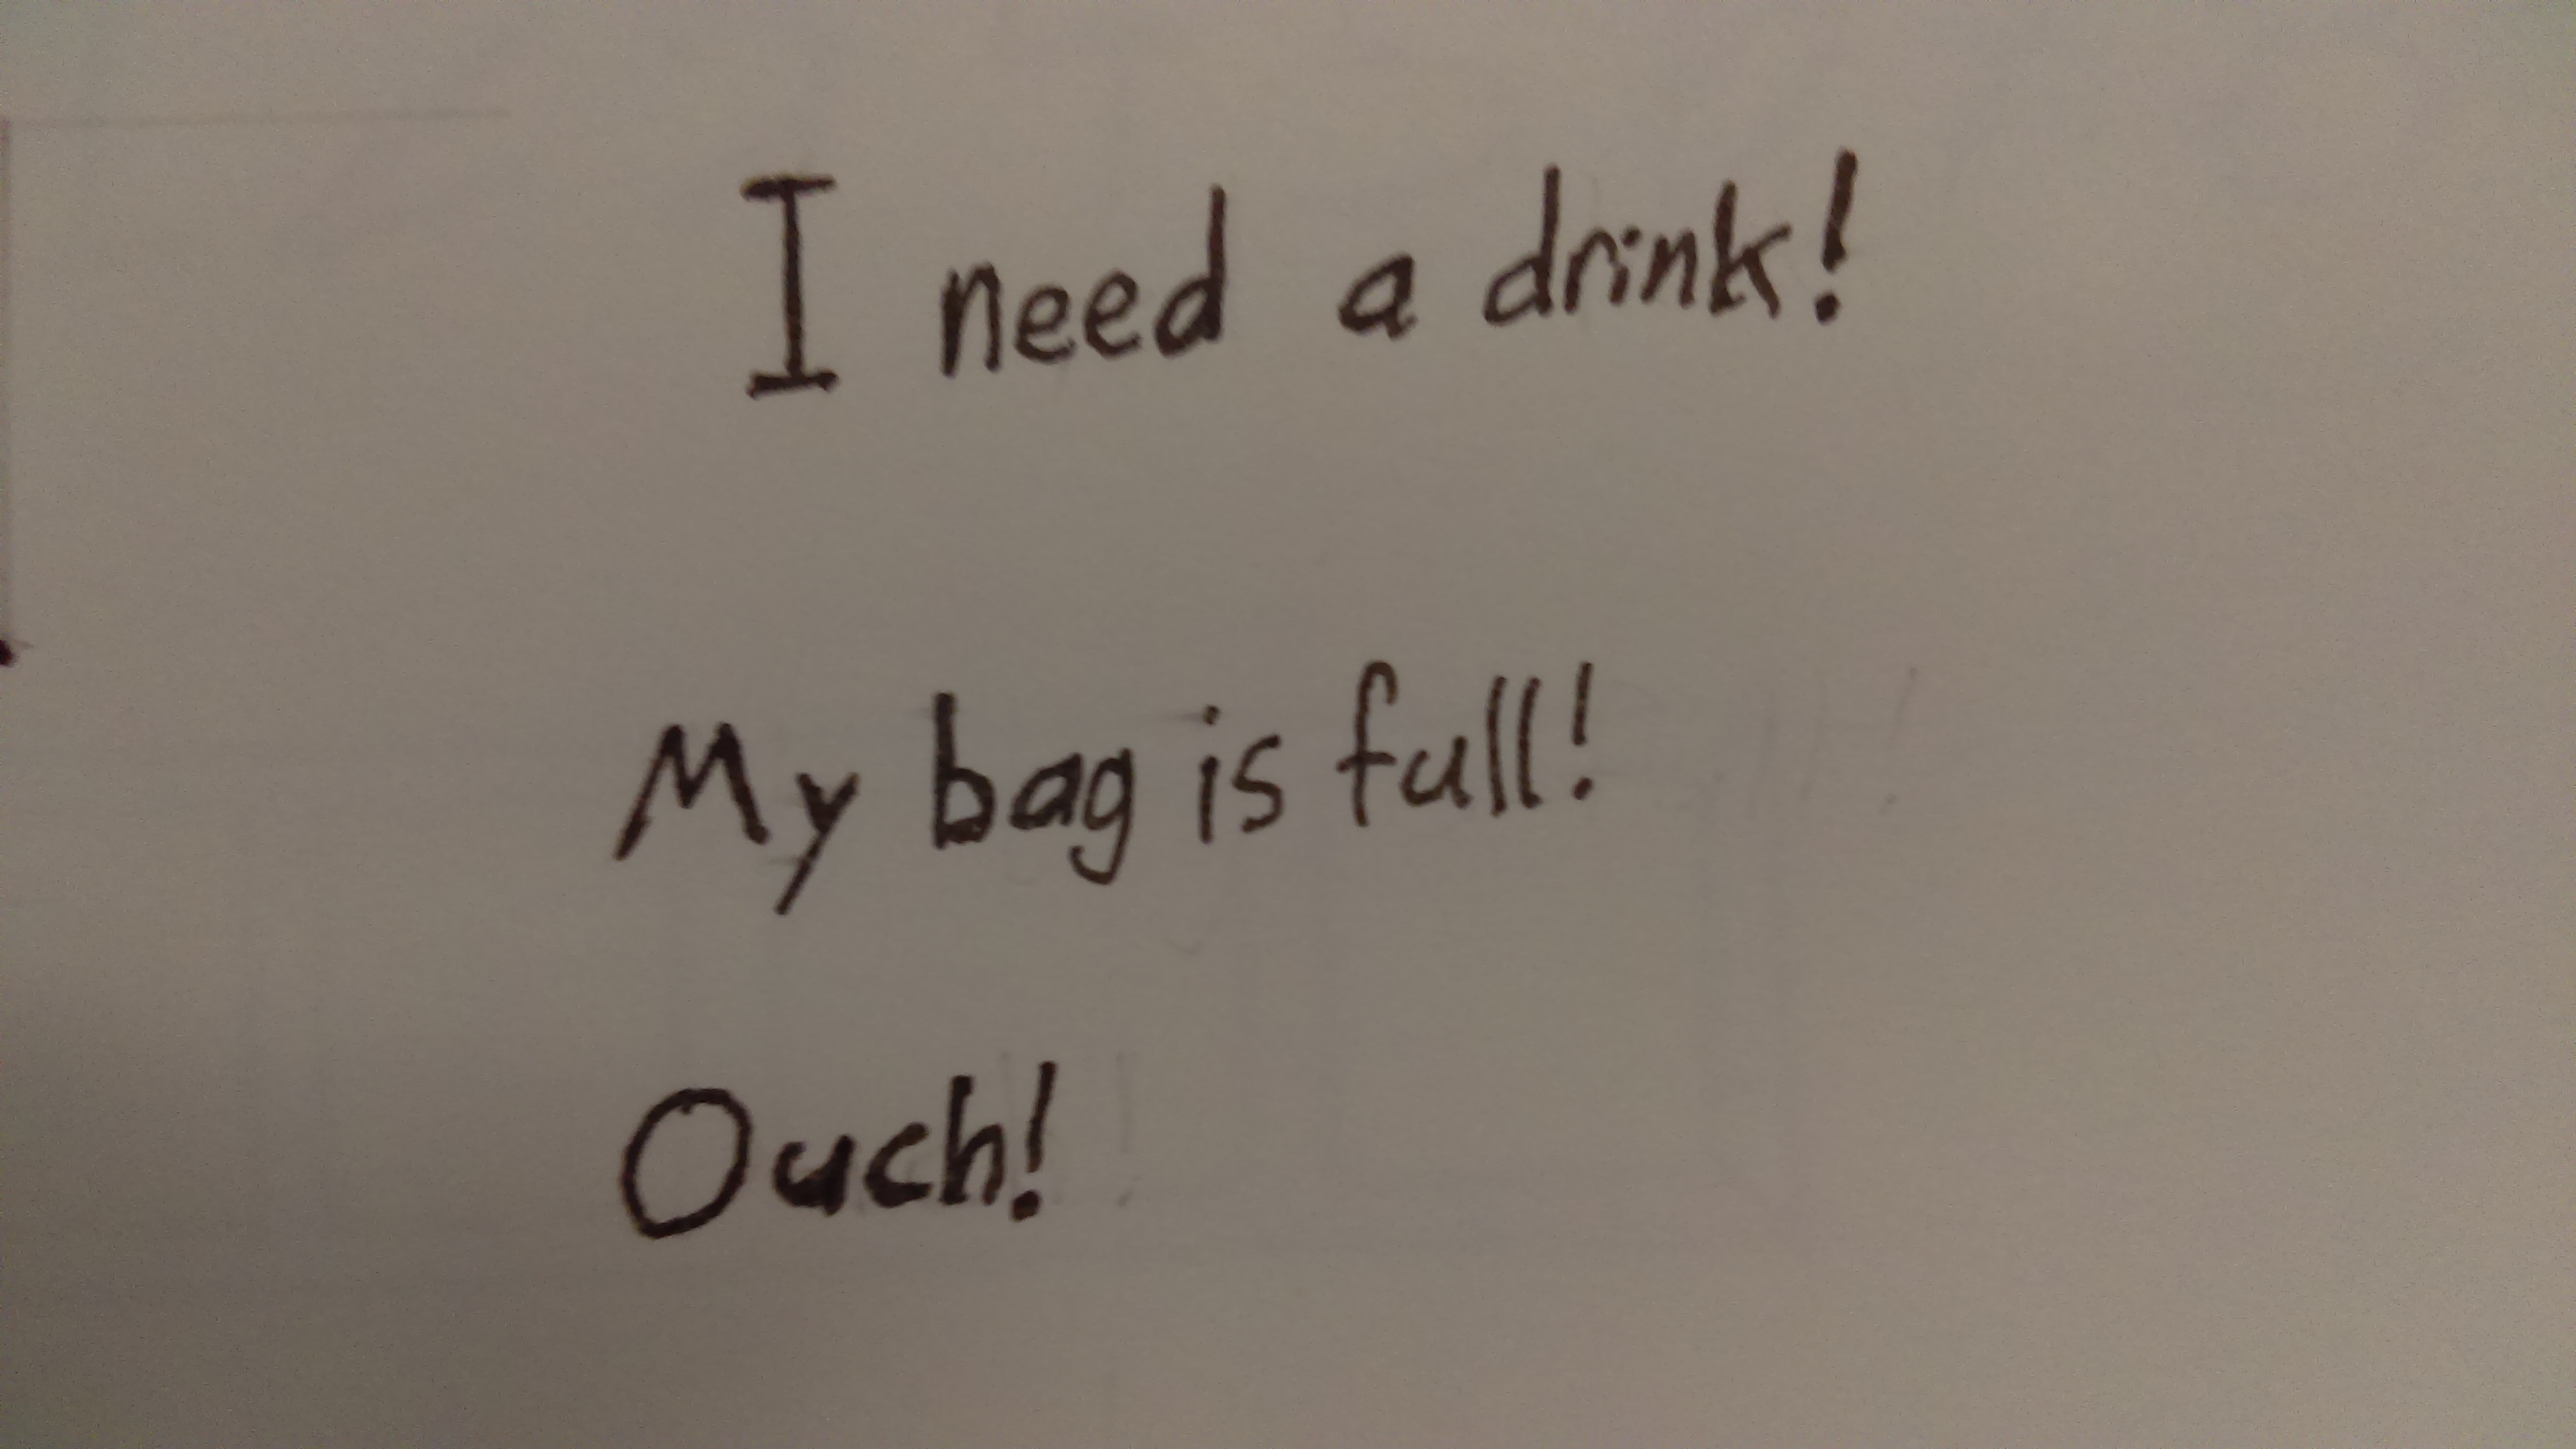 I need a drink!
My bag is full!
Ouch!